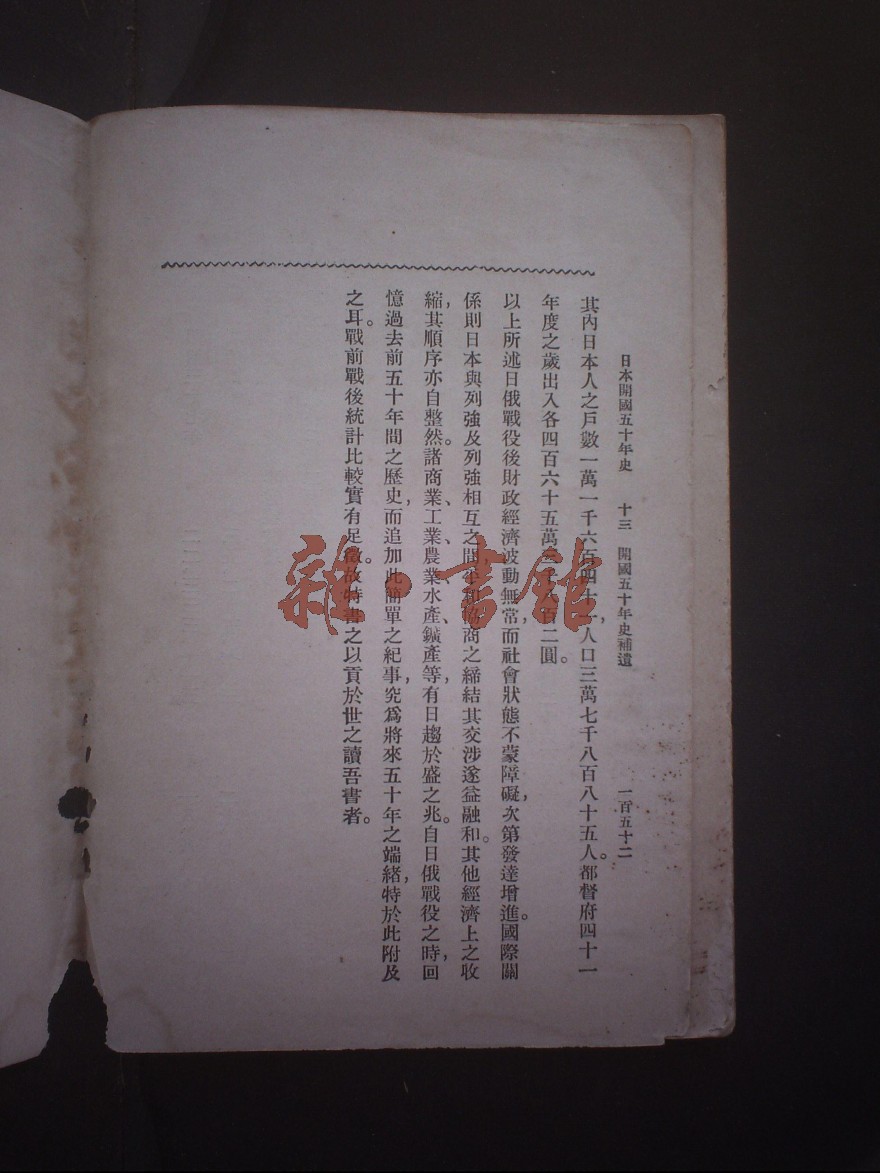 日本開國五十年史 十三 開國五十年史補遺 一百五十二
其內日本人之戶數一萬一千六百四十一,人口三萬七千八百八十五人。都督府四十一
年度之歲出入各四百六十五萬 百二圓。
以上所述日俄戰役後財政經濟波動無常,而社會狀態不蒙障礙,次第發達增進。國際關
係則日本與列強及列強相互之間, 協商之締結其交涉遂益融和。其他經濟上之收
縮,其順序亦自整然。諸商業、工業、農業、水產、鑛產等,有日趨於盛之兆。自日俄戰役之時,回
憶過去前五十年間之歷史,而追加此簡單之紀事,究爲將來五十年之端緒,特於此附及
之耳。戰前戰後統計比較實有足徵。故特書之以貢於世之讀吾書者。
雜·書館